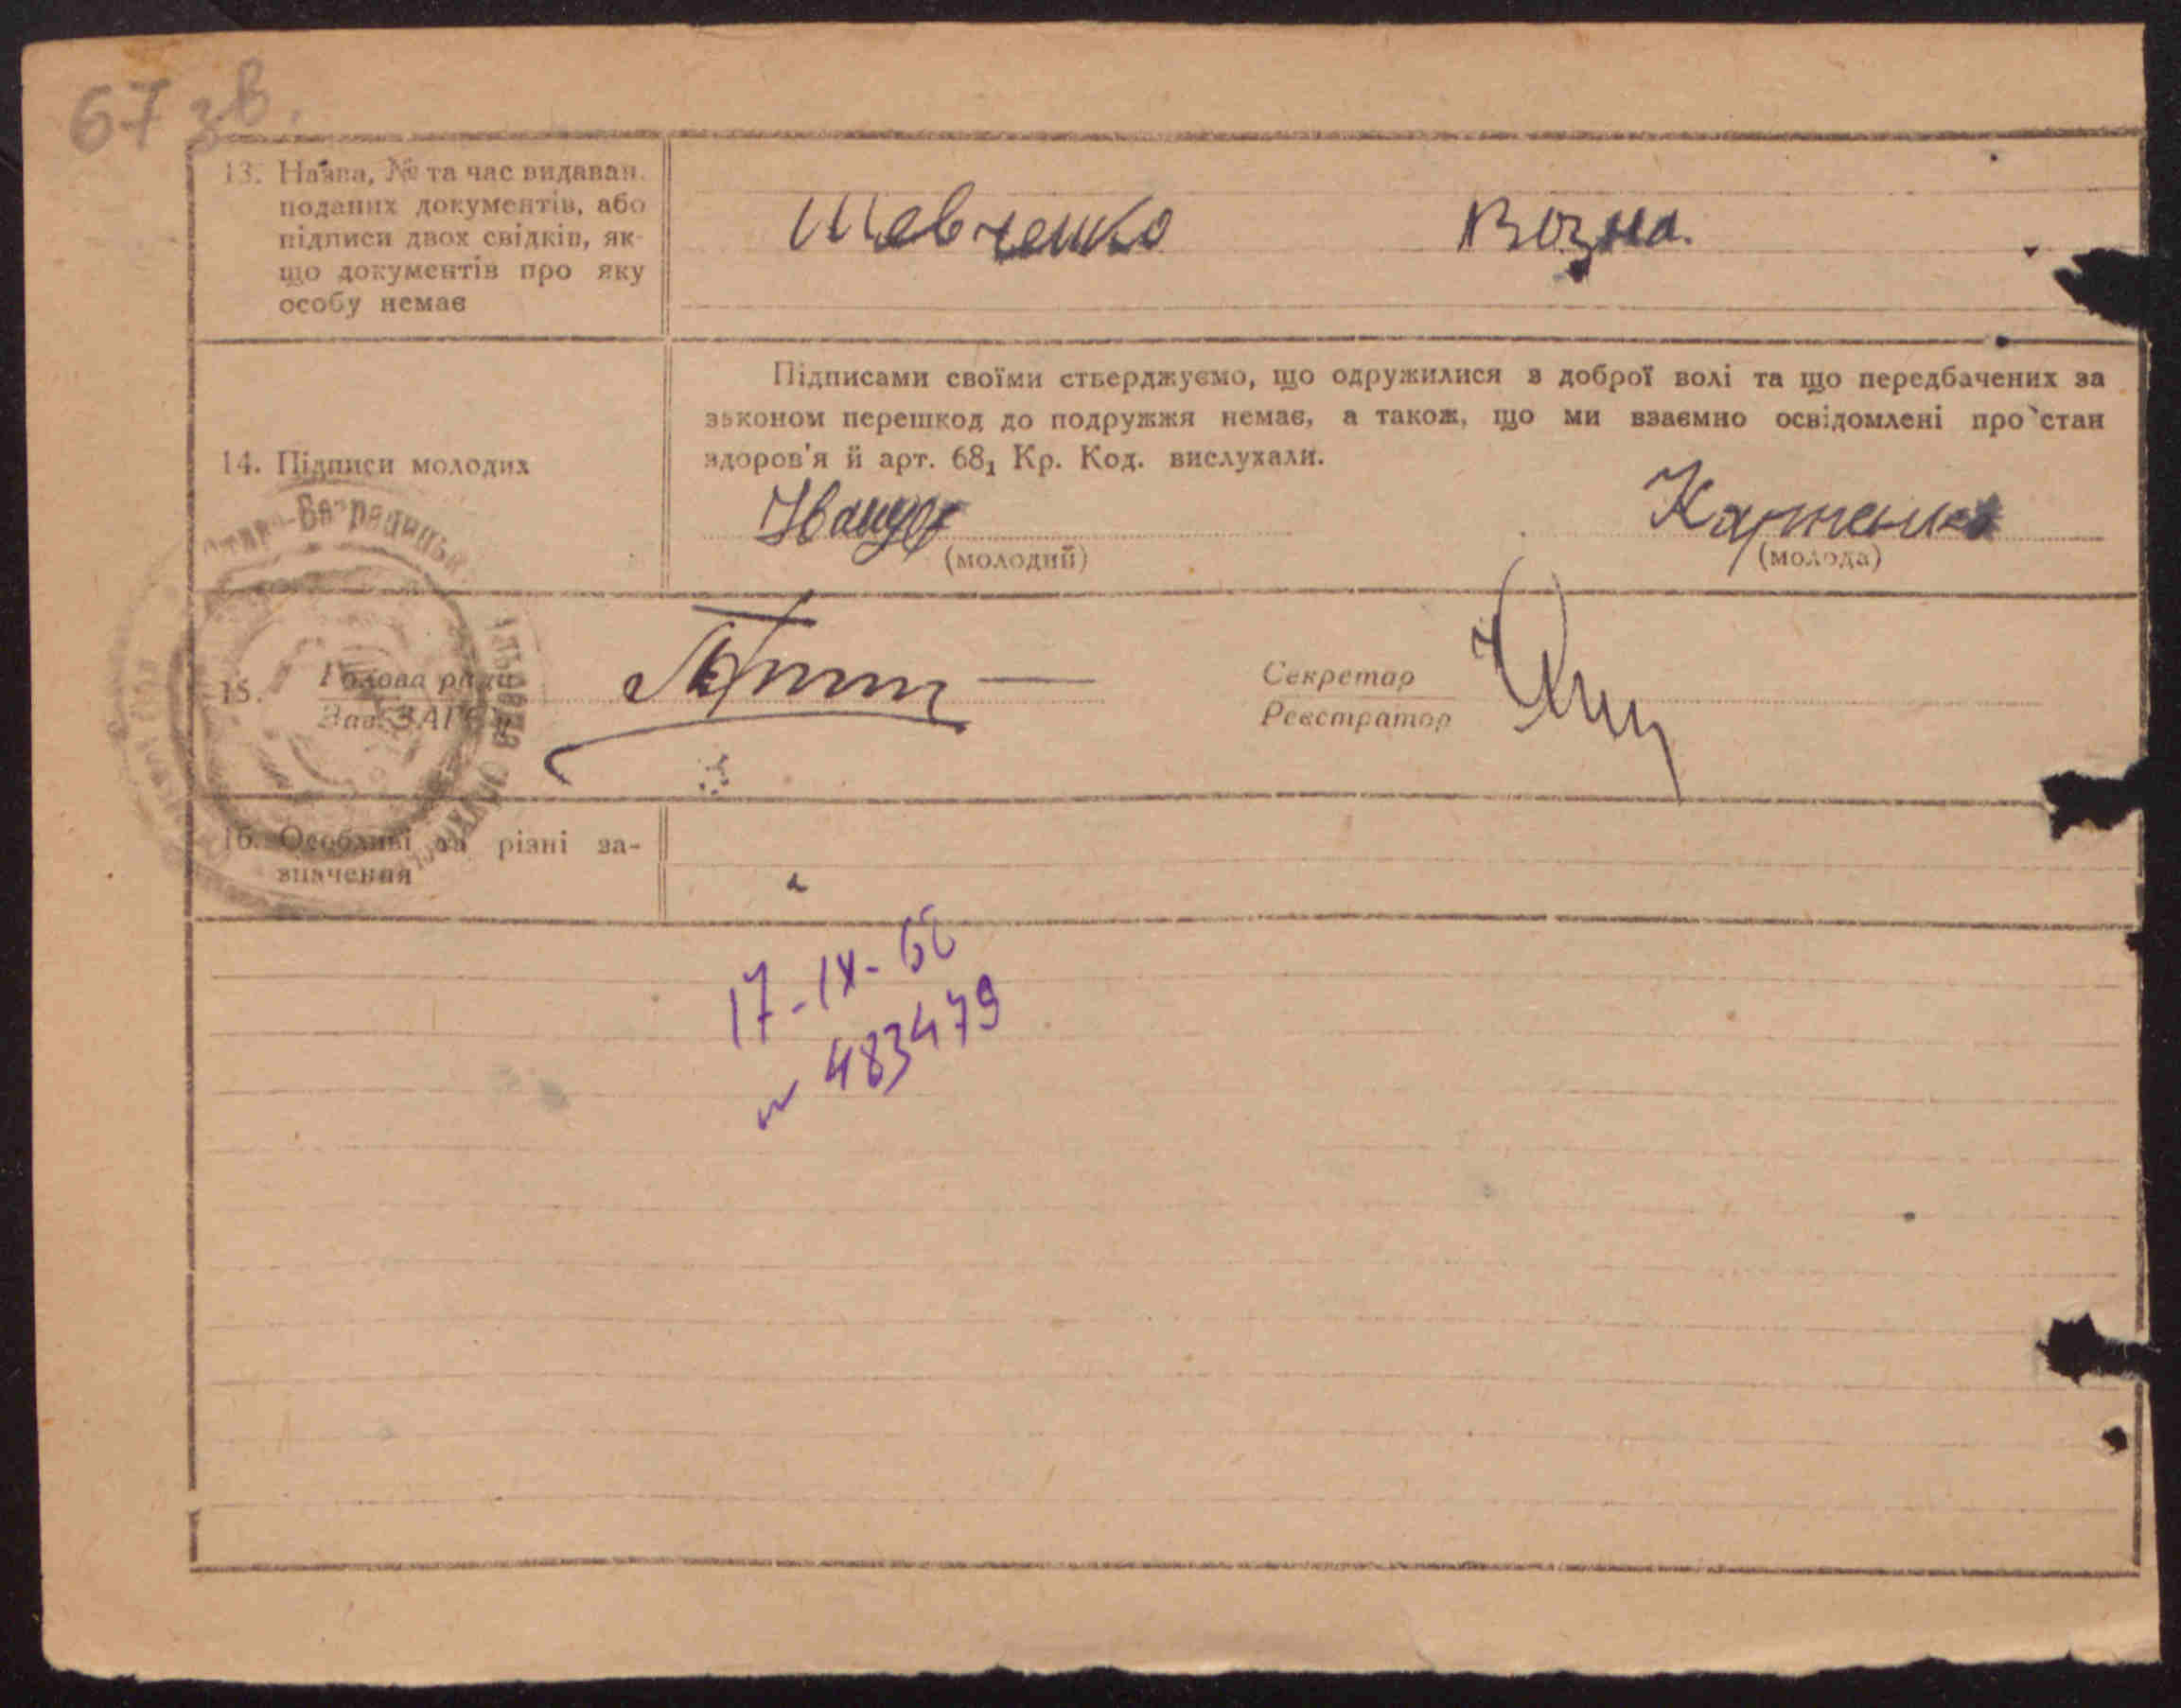 67 зв.
13. Назва, № та час видаван.
поданих документів, або
підписи двох свідків, як-
що документів про яку
особу немає
Шевченко Возна.
14. Підписи молодих
Підписами своїми стверджуємо, що одружилися з доброї волі та що передбачених за
законом перешкод до подружжя немає, а також, що ми взаємно освідомлені про стан
здоров'я й арт. 68₁ Кр. Код. вислухали.
(молодий) (молода)
15. Голова ради
Зав. ЗАГС'у
Секретар
Реєстратор
16. Особливі та різні за-
значення
17-IX-66
№ 483479